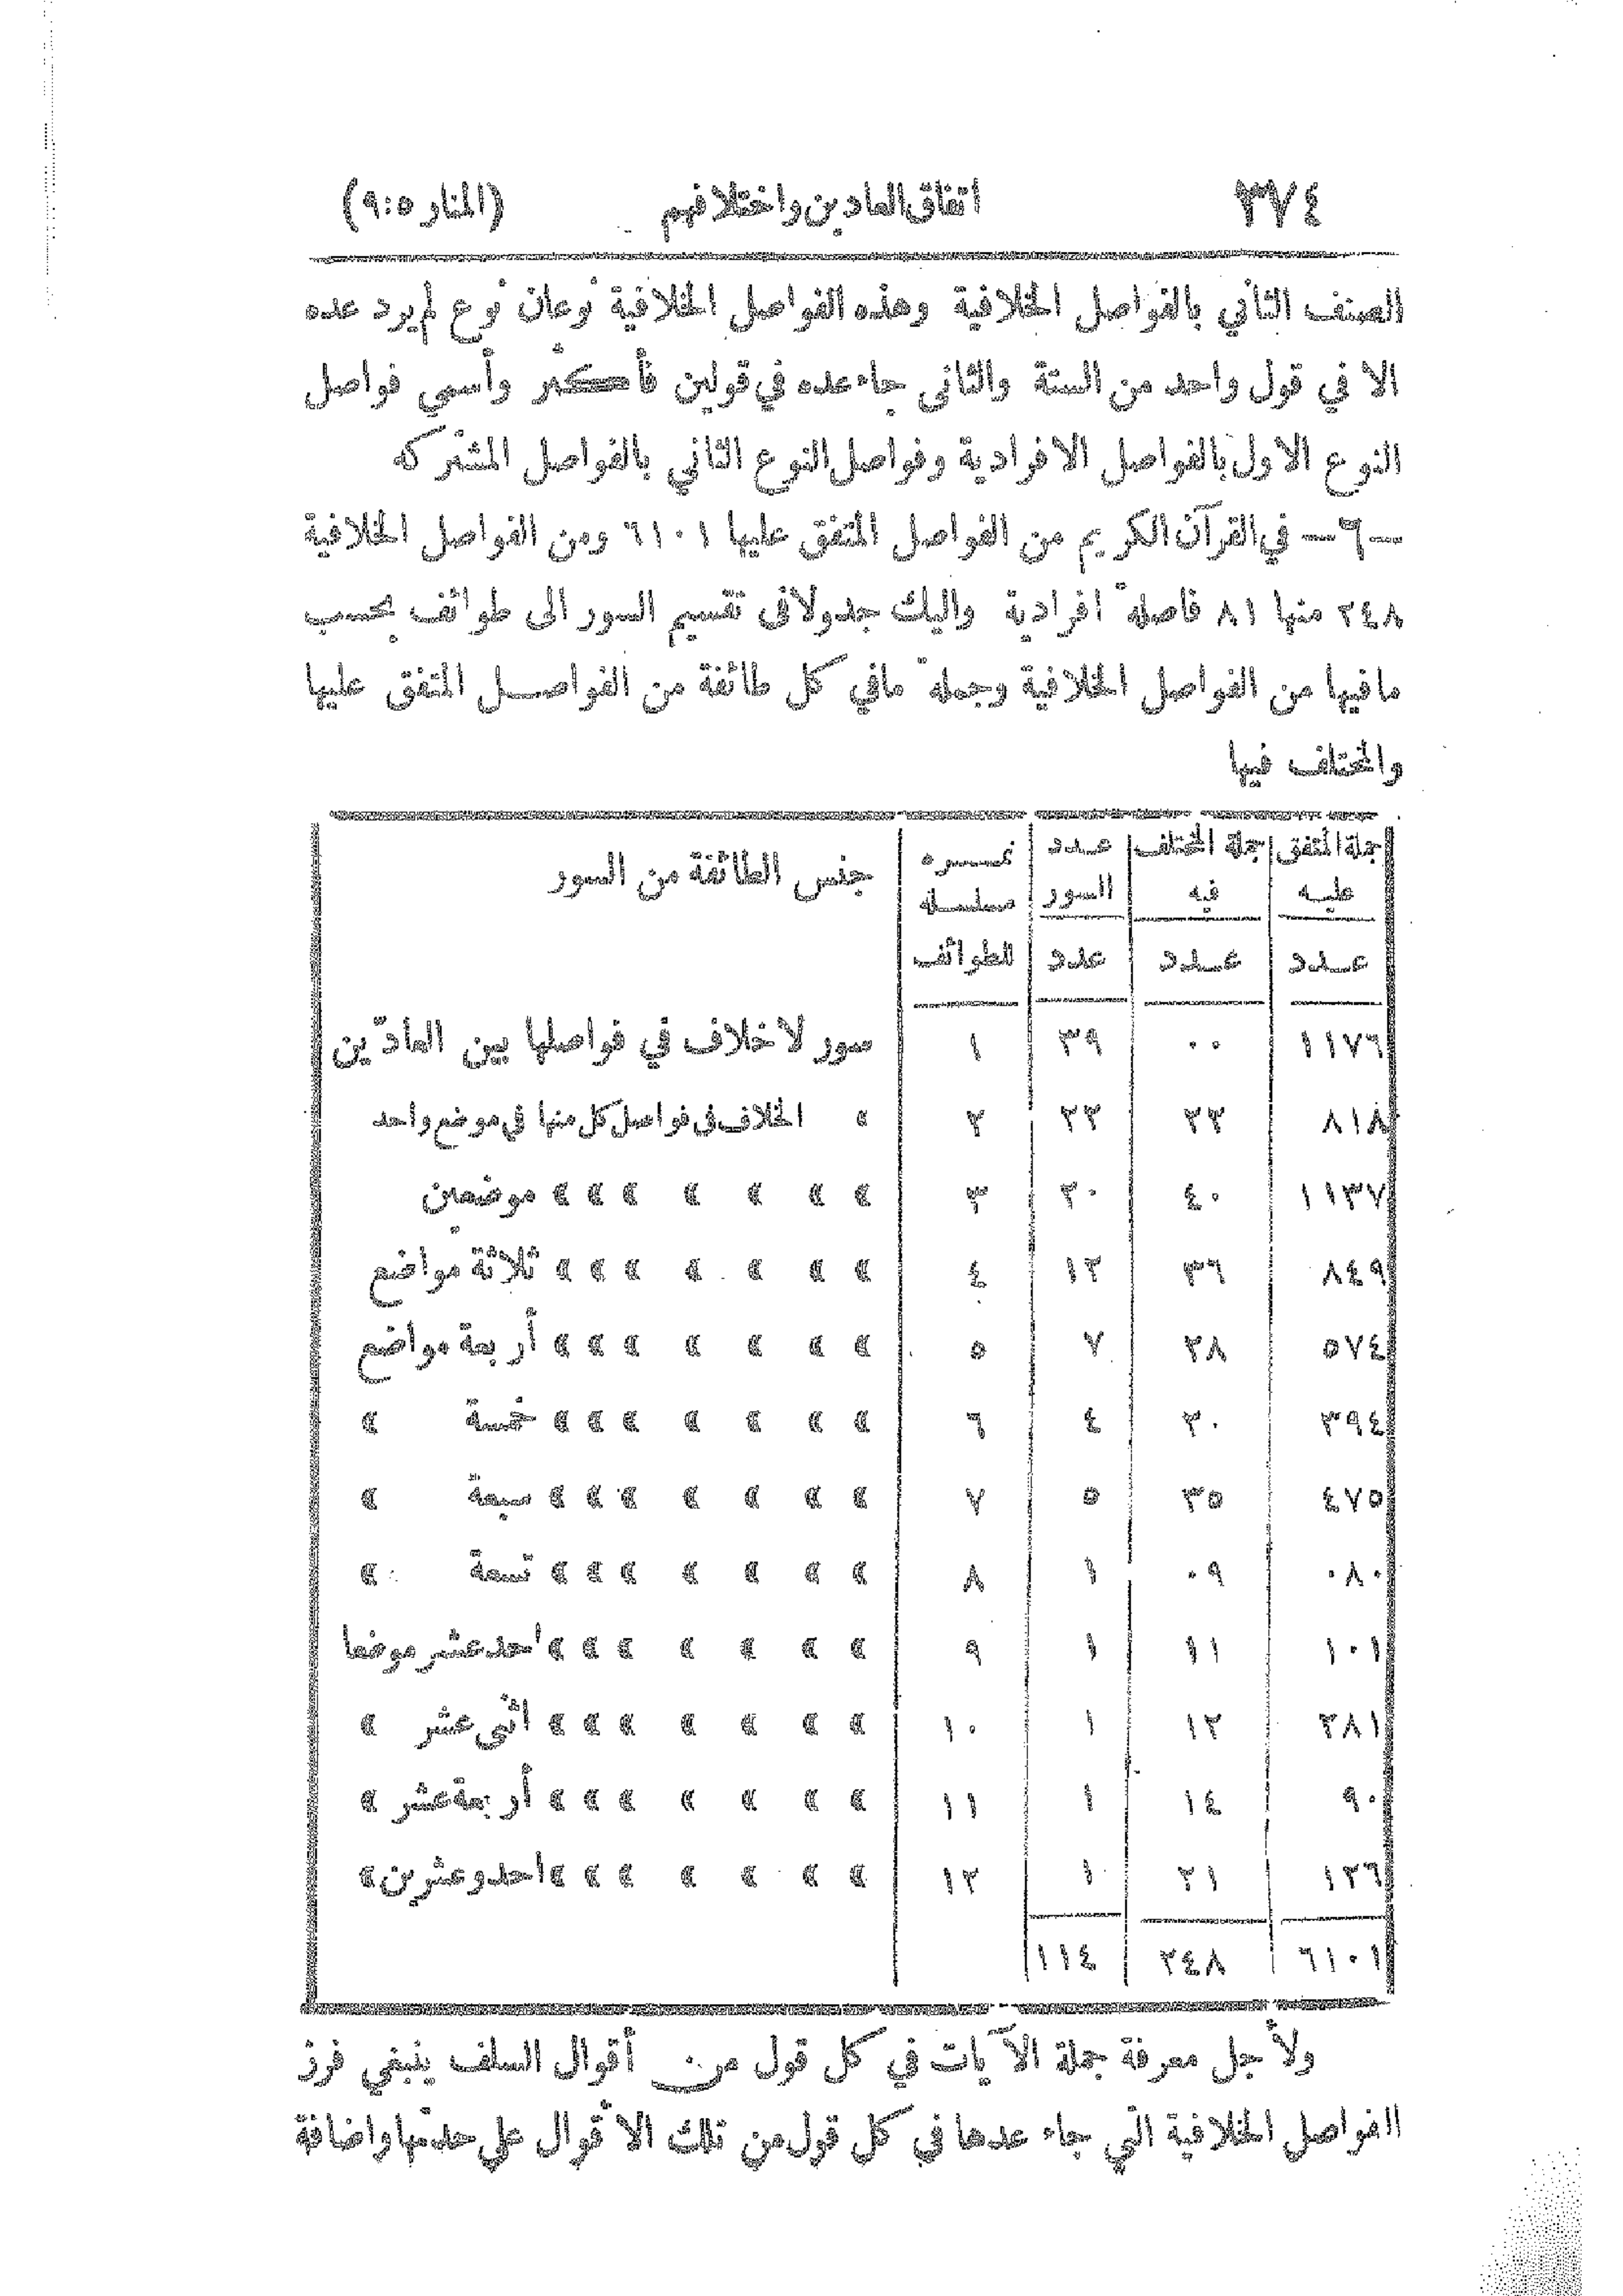 ٣٧٤ اتفاق العادين واختلافهم (المنار ٥:٩)
الصنف الثاني بالفواصل الخلافية وهذه الفواصل الخلافية نوعان نوع لم يرد عده
الا في قول واحد من الستة والثاني جاء عده في قولين فأكثر وأسمي فواصل
النوع الاول بالفواصل الافرادية وفواصل النوع الثاني بالفواصل المشتركه
—٦— في القرآن الكريم من الفواصل المتفق عليها ٦١٠١ ومن الفواصل الخلافية
٢٤٨ منها ٨١ فاصلة افرادية واليك جدولا في تقسيم السور الى طوائف بحسب
ما فيها من الفواصل الخلافية وجملة مافي كل طائفة من الفواصل المتفق عليها
والمختلف فيها
جملة المتفق جملة المختلف عدد نمسره جنس الطائفة من السور
عليه فيه السور مسلسلة
عدد عدد عدد للطوائف
١١٧٦ ٠٠ ٣٩ ١ سور لا خلاف في فواصلها بين العادّين
٨١٨ ٢٢ ٢٢ ٢ » الخلاف في فواصل كل منها في موضع واحد
١١٣٧ ٤٠ ٢٠ ٣ » » » » » » » موضعين
٨٤٩ ٣٦ ١٢ ٤ » » » » » » » ثلاثة مواضع
٥٧٤ ٢٨ ٧ ٥ » » » » » » » أربعة مواضع
٣٩٤ ٢٠ ٤ ٦ » » » » » » » خمسة »
٤٧٥ ٣٥ ٥ ٧ » » » » » » » سبعة »
٠٨٠ ٠٩ ١ ٨ » » » » » » » تسعة »
١٠١ ١١ ١ ٩ » » » » » » » احد عشر موضعا
٢٨١ ١٢ ١ ١٠ » » » » » » » اثنى عشر »
٩٠ ١٤ ١ ١١ » » » » » » » أربعة عشر »
١٢٦ ٢١ ١ ١٢ » » » » » » » احد وعشرين »
٦١٠١ ٢٤٨ ١١٤
ولأجل معرفة جملة الآيات في كل قول من أقوال السلف ينبغي فرز
الفواصل الخلافية التي جاء عدها في كل قول من تلك الاقوال على حدتها واضافة